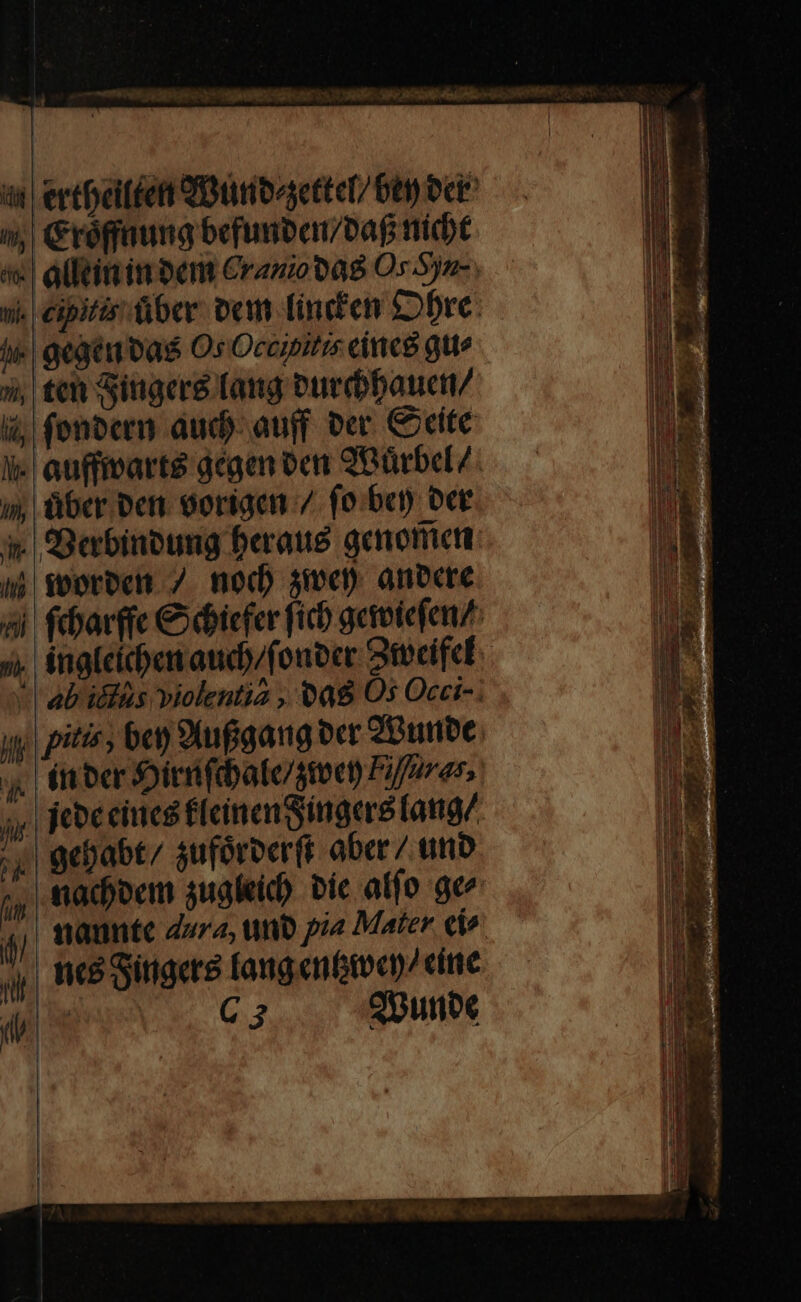 ertheilten Wund⸗zettel/ bey der
Eroͤffnung befunden/ daß nicht
allein in dem Cranio das Os Syn-
cipitis uͤber dem lincken Ohre
gegen das Os Occipitis eines gu⸗
ten Fingers lang durchhauen/
ſondern auch auff der Seite
auffwarts gegen den Wuͤrbel/
uͤber den vorigen / ſo bey der
Verbindung heraus genom̃en
worden / noch zwey andere
ſcharffe Schiefer ſich gewieſen/
ingleichen auch/ ſonder Zweifel
ab ictûs violentiâ, das Os Occi-
pitis, bey Außgang der Wunde
in der Hirnſchale/ zwey Fiſſuras,
jede eines kleinen Fingers lang/
gehabt/ zufoͤrderſt aber / und
nachdem zugleich die alſo ge⸗
nannte dura, und pia Mater ei⸗
nes Fingers lang entzwey/ eine
C 3 Wunde